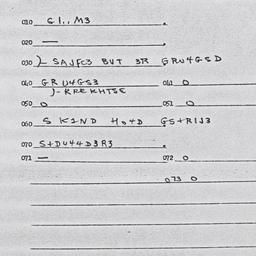 010 G1., M3 .
020 — .
030 2 SAJFC3 BUT 3R GRU4GSD
040 GRU4GS3 041 0
J-KREKHTSE
050 0 051 0
060 S K1ND H0+D GS+R1J3
070 S+DU44D3R3 .
071 — 072 0
073 0